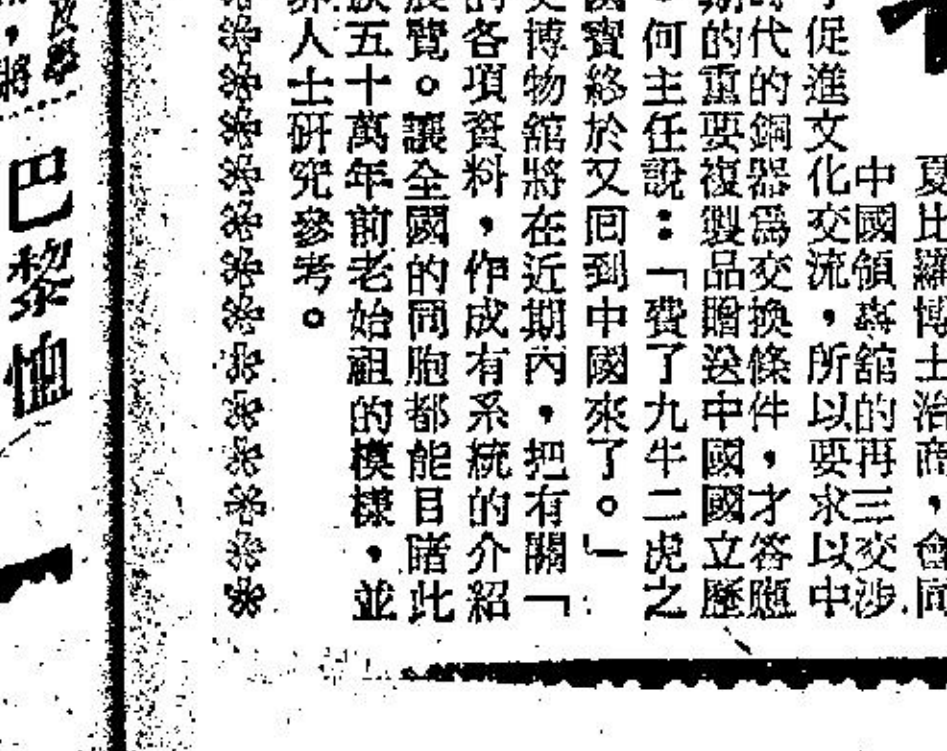 夏比羅博士洽商，會同
中國領事館的再三交涉
促進文化交流，所以要求以中
時代的銅器為交換條件，才答應
期的重要複製品贈送中國國立歷
。何主任說：「費了九牛二虎之
國寶終於又回到中國來了。」
史博物館將在近期內，把有關「
的各項資料，作成有系統的介紹
展覽。讓全國的同胞都能目睹此
族五十萬年前老始祖的模樣，並
界人士研究參考。
，將
巴黎恤